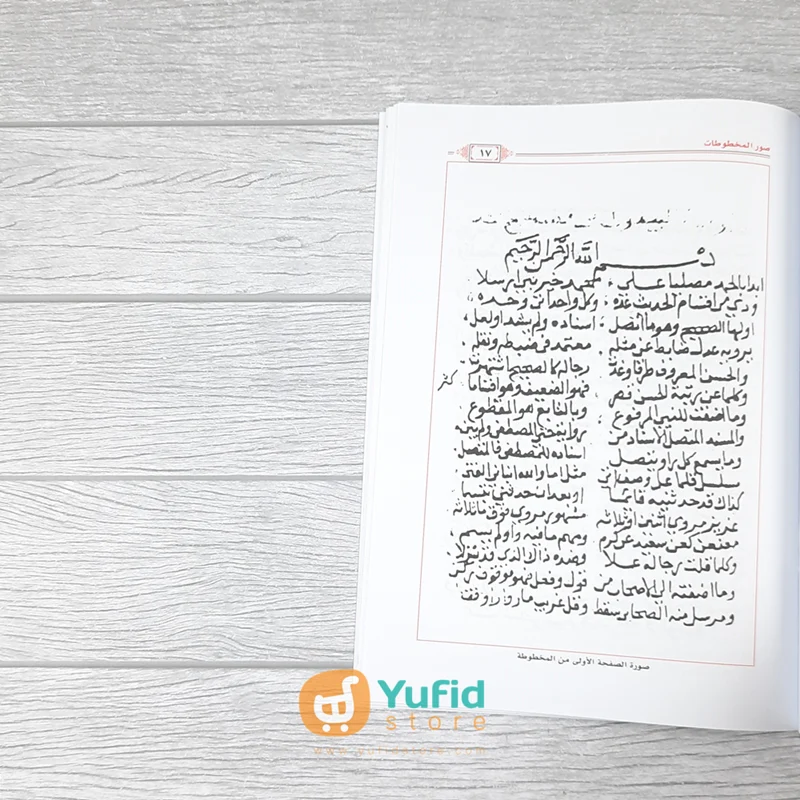 صور المخطوطات
١٧
بسم الله الرحمن الرحيم
ابدا بالحمد مصليا على محمد خير نبي ارسلا
وذي من اقسام الحديث عده وكل واحد اتى وحده
اولها الصحيح وهو ما اتصل اسناده ولم يشذ او
يرويه عدل ضابط عن مثله معتمد في ضبطه ونقله
والحسن المعروف طرقا وغدت رجاله كالصحيح اشتهرت
وكلما عن رتبة الحسن قصر فهو الضعيف وهو اقساما كثر
وما اضفت للنبي المرفوع وبالتابع هو المقطوع
والمسند المتصل الاسناد من حتى المصطفى ولم يبن
وما يسمع كل راو يتصل اسناده للمصطفى فالمتصل
مسلسل قل ما على وصف اتى مثل اما والله انباني الفتى
كذاك قد حدثنيه قائما او بعد ان حدثني تبسما
عزيز مروي اثنين او ثلاثه مشهور مروي فوق ما ثلاثه
معنعن كعن سعيد عن كرم ومبهم ما فيه راو لم يسم
وكلما قلت رجاله علا وضده ذاك الذي قد نزلا
وما اضفته الى الاصحاب من قول وفعل فهو موقوف زكن
ومرسل منه الصحابي سقط وقل غريب ما روى راو فقط
صورة الصفحة الأولى من المخطوطة
Yufid
store